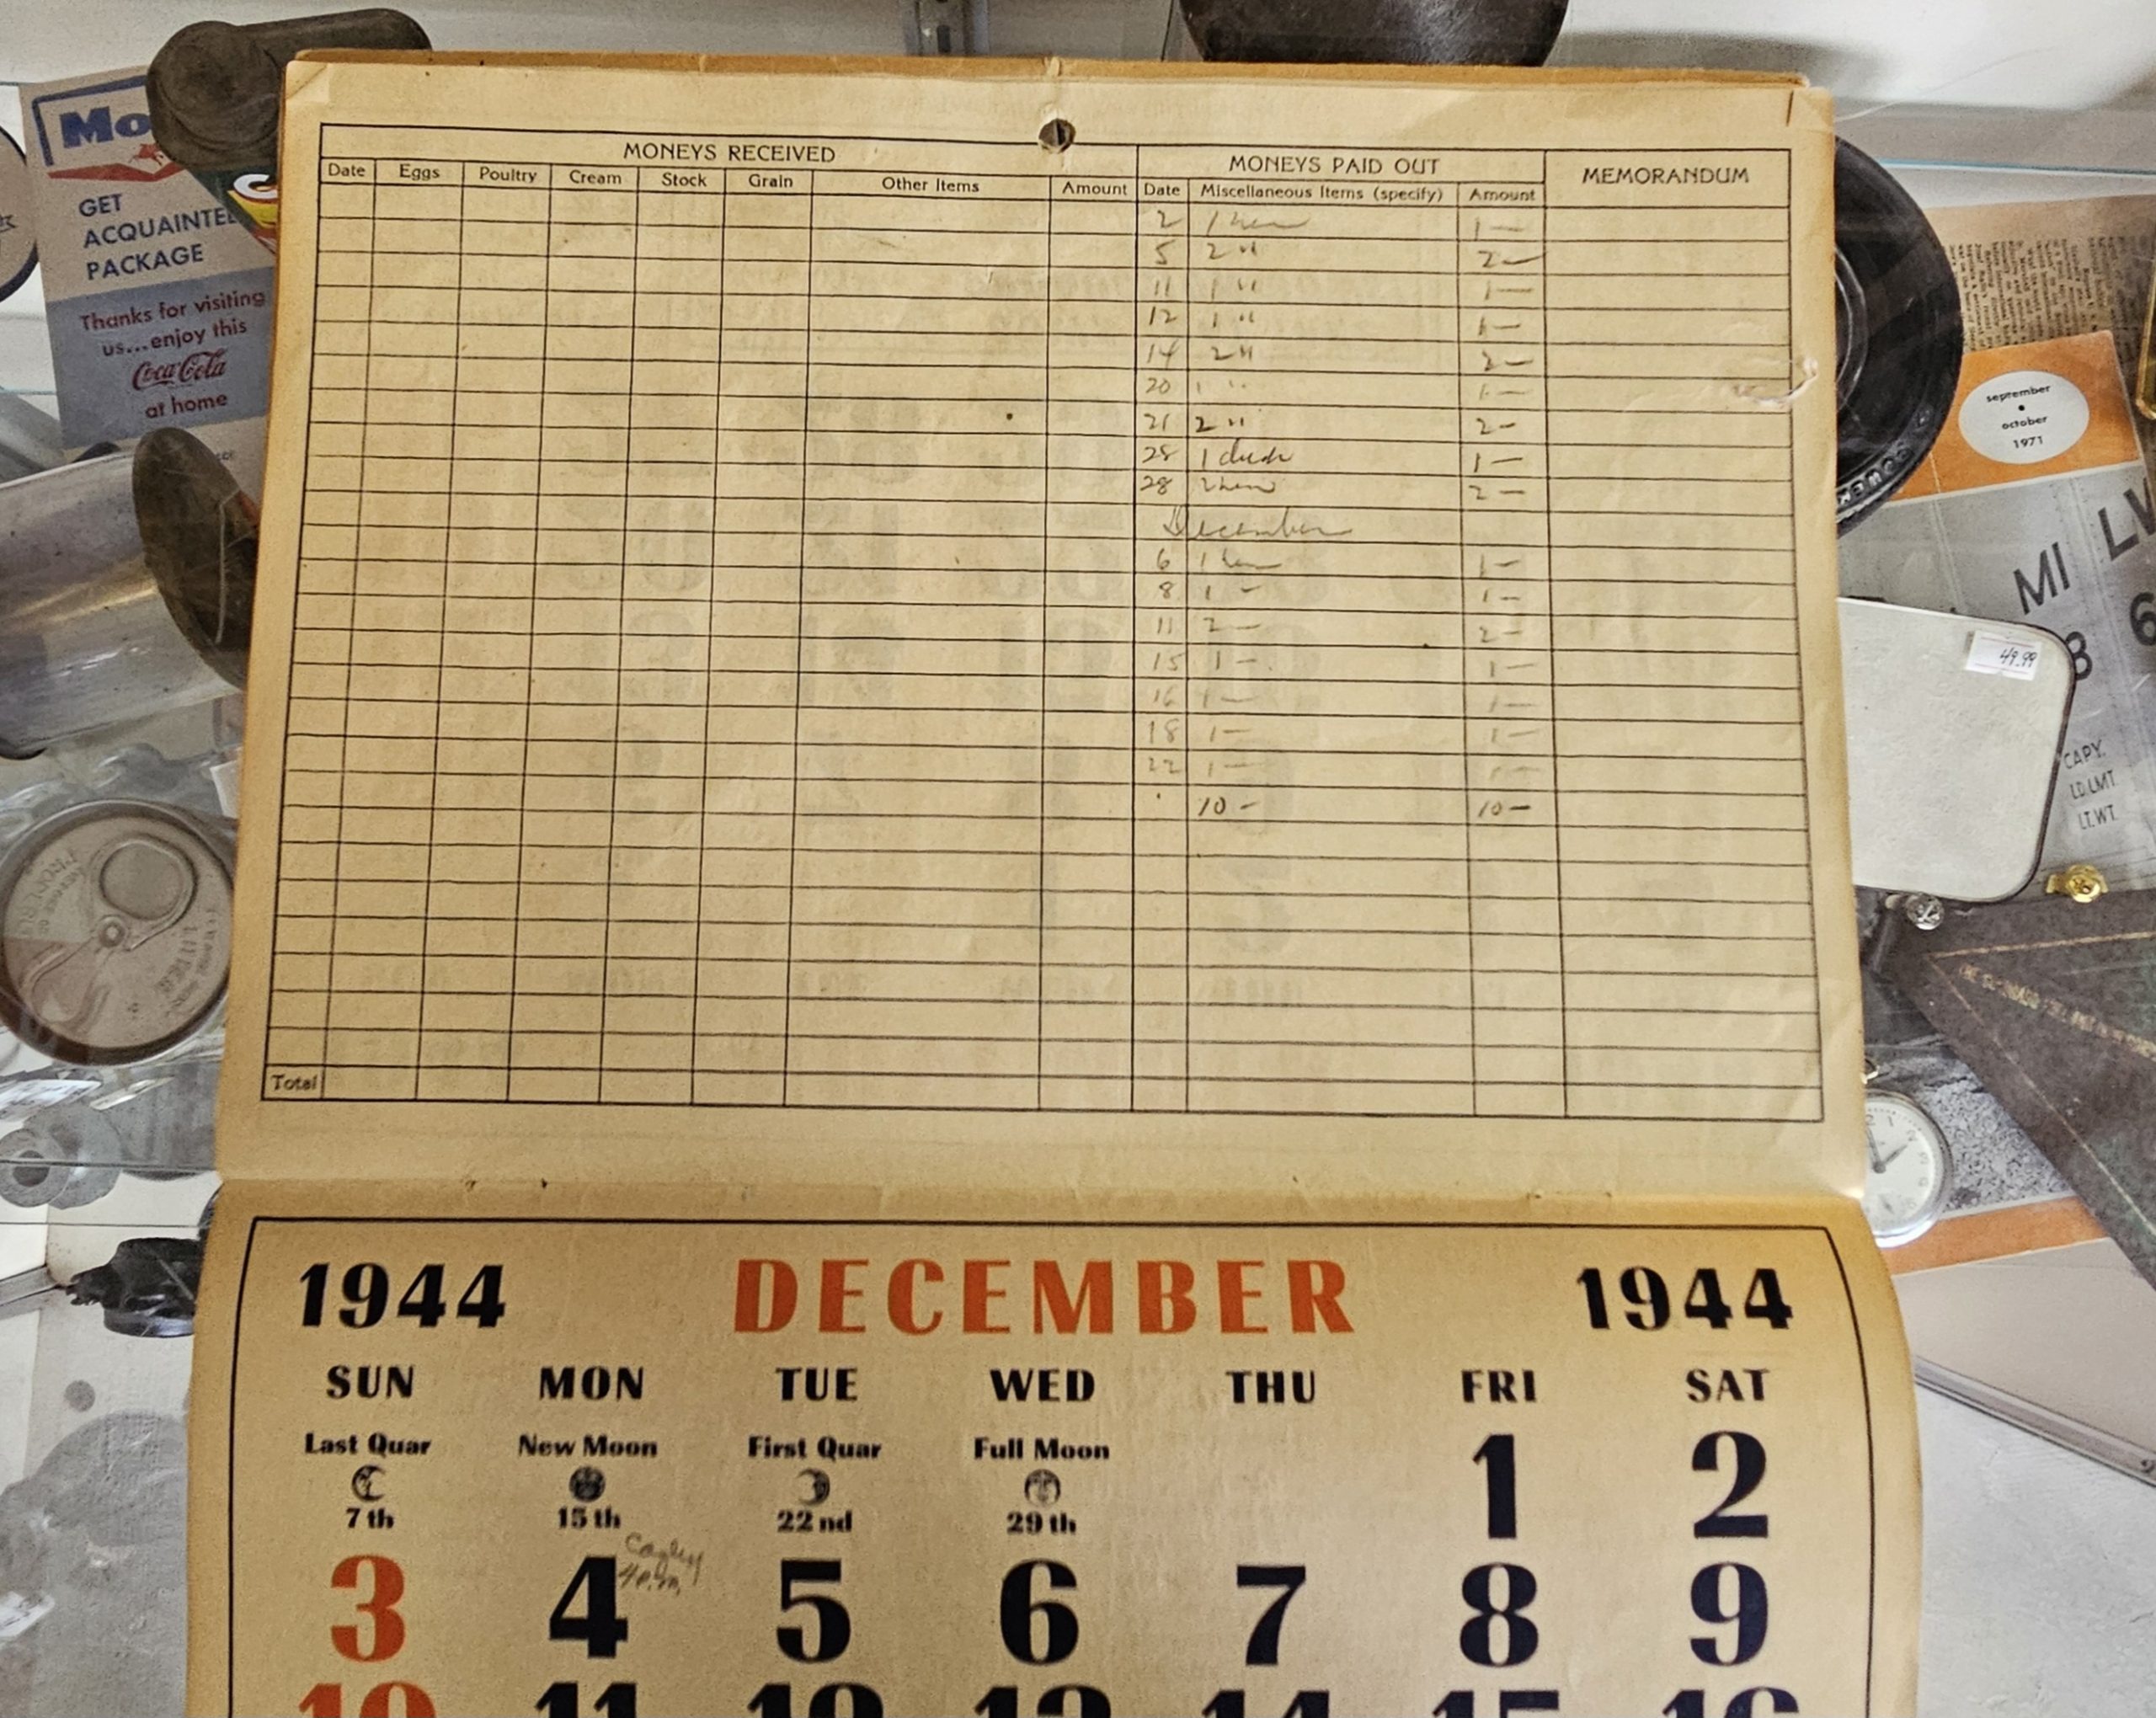 Mo
GET
ACQUAINTED
PACKAGE
Thanks for visiting
us...enjoy this
Coca-Cola
at home
MONEYS RECEIVED MONEYS PAID OUT MEMORANDUM
Date Eggs Poultry Cream Stock Grain Other Items Amount Date Miscellaneous Items (specify) Amount
2 1 hen 1—
5 2 " 2—
11 1 " 1—
12 1 " 1—
14 2 " 2—
20 1 " 1—
21 2 " 2—
28 1 duck 1—
28 2 hens 2—
December
6 1 hen 1—
8 1 – 1—
11 2 — 2—
15 1 – 1—
16 1 — 1—
18 1 — 1—
22 1 — 1—
10 – 10—
Total
september
•
october
1971
MI
LW
8
6
49.99
CAPY.
LD.LMT.
LT.WT.
1944 DECEMBER 1944
SUN MON TUE WED THU FRI SAT
Last Quar New Moon First Quar Full Moon
7th 15th 22nd 29th
1 2
4 P.m.
3 4 5 6 7 8 9
10 11 12 13 14 15 16